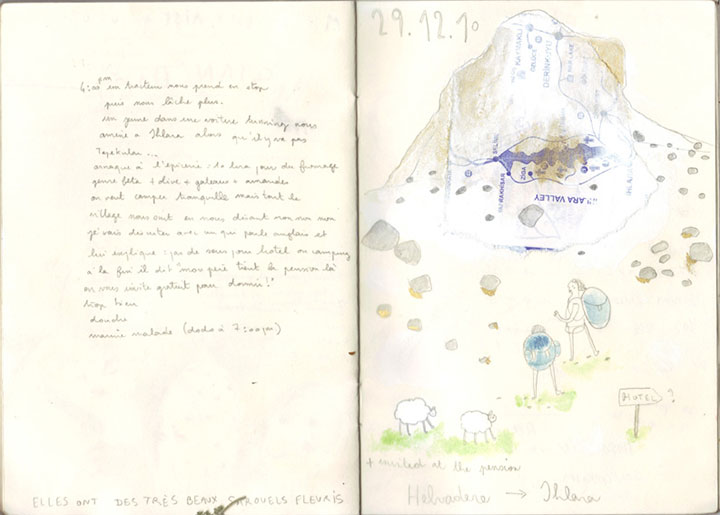 pm
4:00 un tracteur nous prend en stop
puis nous lâche plus.
un jeune dans une voiture tunning nous
amène à Ihlara alors qu'il y va pas
Tepekulan...
arnaque à l'épicerie: 10 lira pour du fromage
genre féta + olive + gateaux + amandes
on veut camper tranquille mais tout le
village nous suit en nous disant non non non
je vais discuter avec un qui parle anglais et
lui explique: pas de sous pour hotel ou camping
à la fin il dit "mon père tient la pension là
on vous invite gratuit pour dormir!"
trop bien
douche
marine malade (dodo à 7:00 pm)
ELLES ONT DES TRÈS BEAUX SAROUELS FLEURIS
29.12.10
DERINKUYU
ILARA VALLEY
HOTEL ?
+ invited at the pension
Helvadere → Ihlara